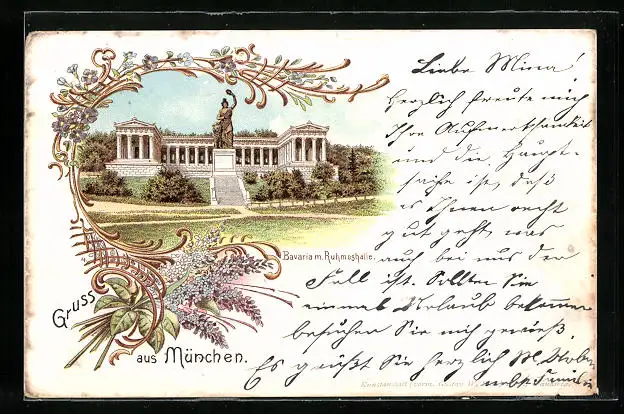 Liebe Mina!
Herzlich freute mich
Ihre Aufmerksamkeit
und die Haupt-
sache ist, daß
es Ihnen recht
gut geht, was
auch bei uns der
Fall ist. Sollten Sie
einmal Urlaub bekommen
besuchen Sie mich gewiß.
Es grüßt Sie herzlich M.
nebst Familie
Bavaria m. Ruhmeshalle.
Gruss
aus München.
Kunstanstalt (vorm. Gustav